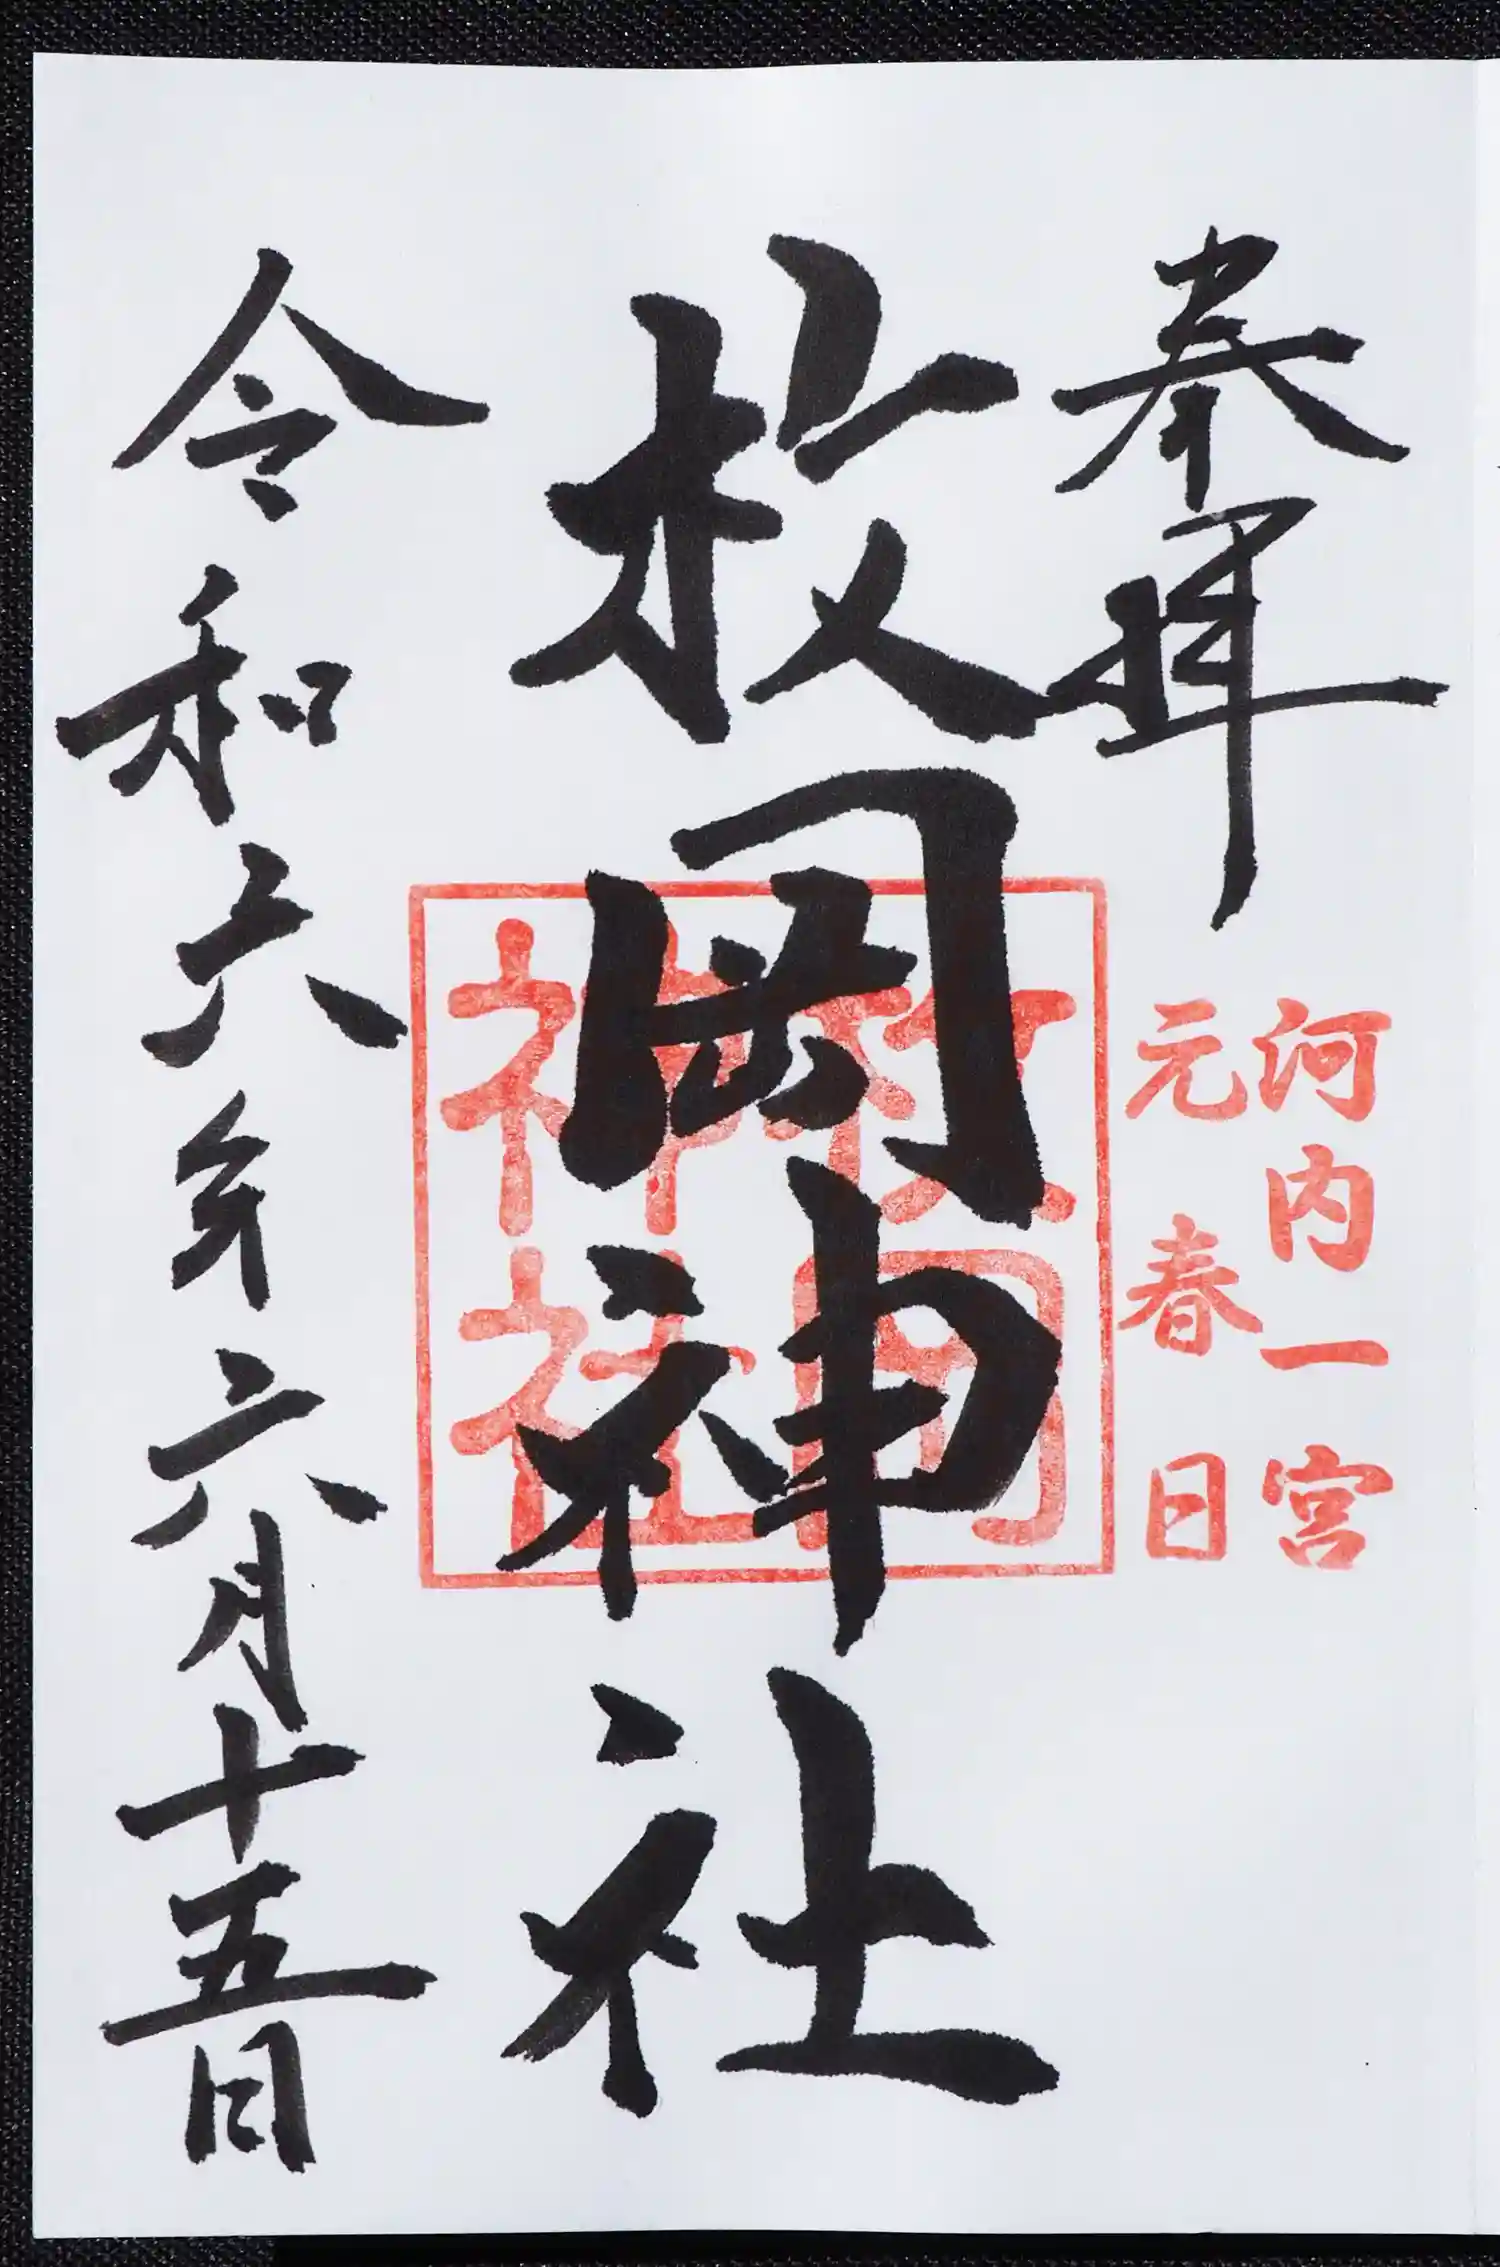 奉拝
河内一宮
元春日
枚岡神社
枚岡
神社
令和六年六月十五日